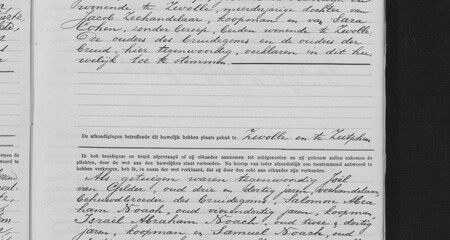 wonende te Zwolle, meerderjarige dochter van
Jacob Leehandelaar, koopman en van Sara
Cohen, zonder beroep, beiden wonende te Zwolle.
De ouders des bruidegoms en de ouders der
bruid, hier tegenwoordig, verklaren in dit hu-
welijk toe te stemmen.
De afkondigingen betreffende dit huwelijk hebben plaats gehad te Zwolle en te Zutphen
Ik heb bruidegom en bruid afgevraagd of zij elkander aannemen tot echtgenooten en zij getrouw zullen nakomen de
plichten, door de wet aan den huwelijken staat verbonden. Na hierop van ieder afzonderlijk een toestemmend antwoord te
hebben verkregen, heb ik, in naam der wet verklaard, dat zij door den echt aan elkander zijn verbonden.
Als getuigen waren tegenwoordig Joël
van Gelder, oud drie en dertig jaren, veehandelaar,
behuwdbroeder des bruidegoms, Salomon Abra
ham Noach, oud vierendertig jaren, koopman,
Israël Abraham Noach, oud twee en dertig
jaren, koopman en Samuel Noach, oud